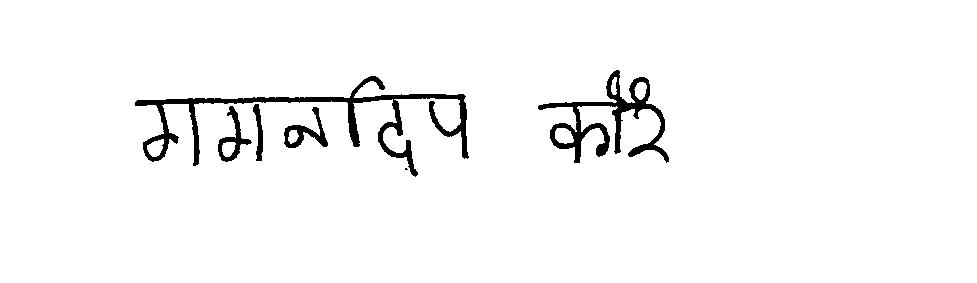 गगनदिप कौर